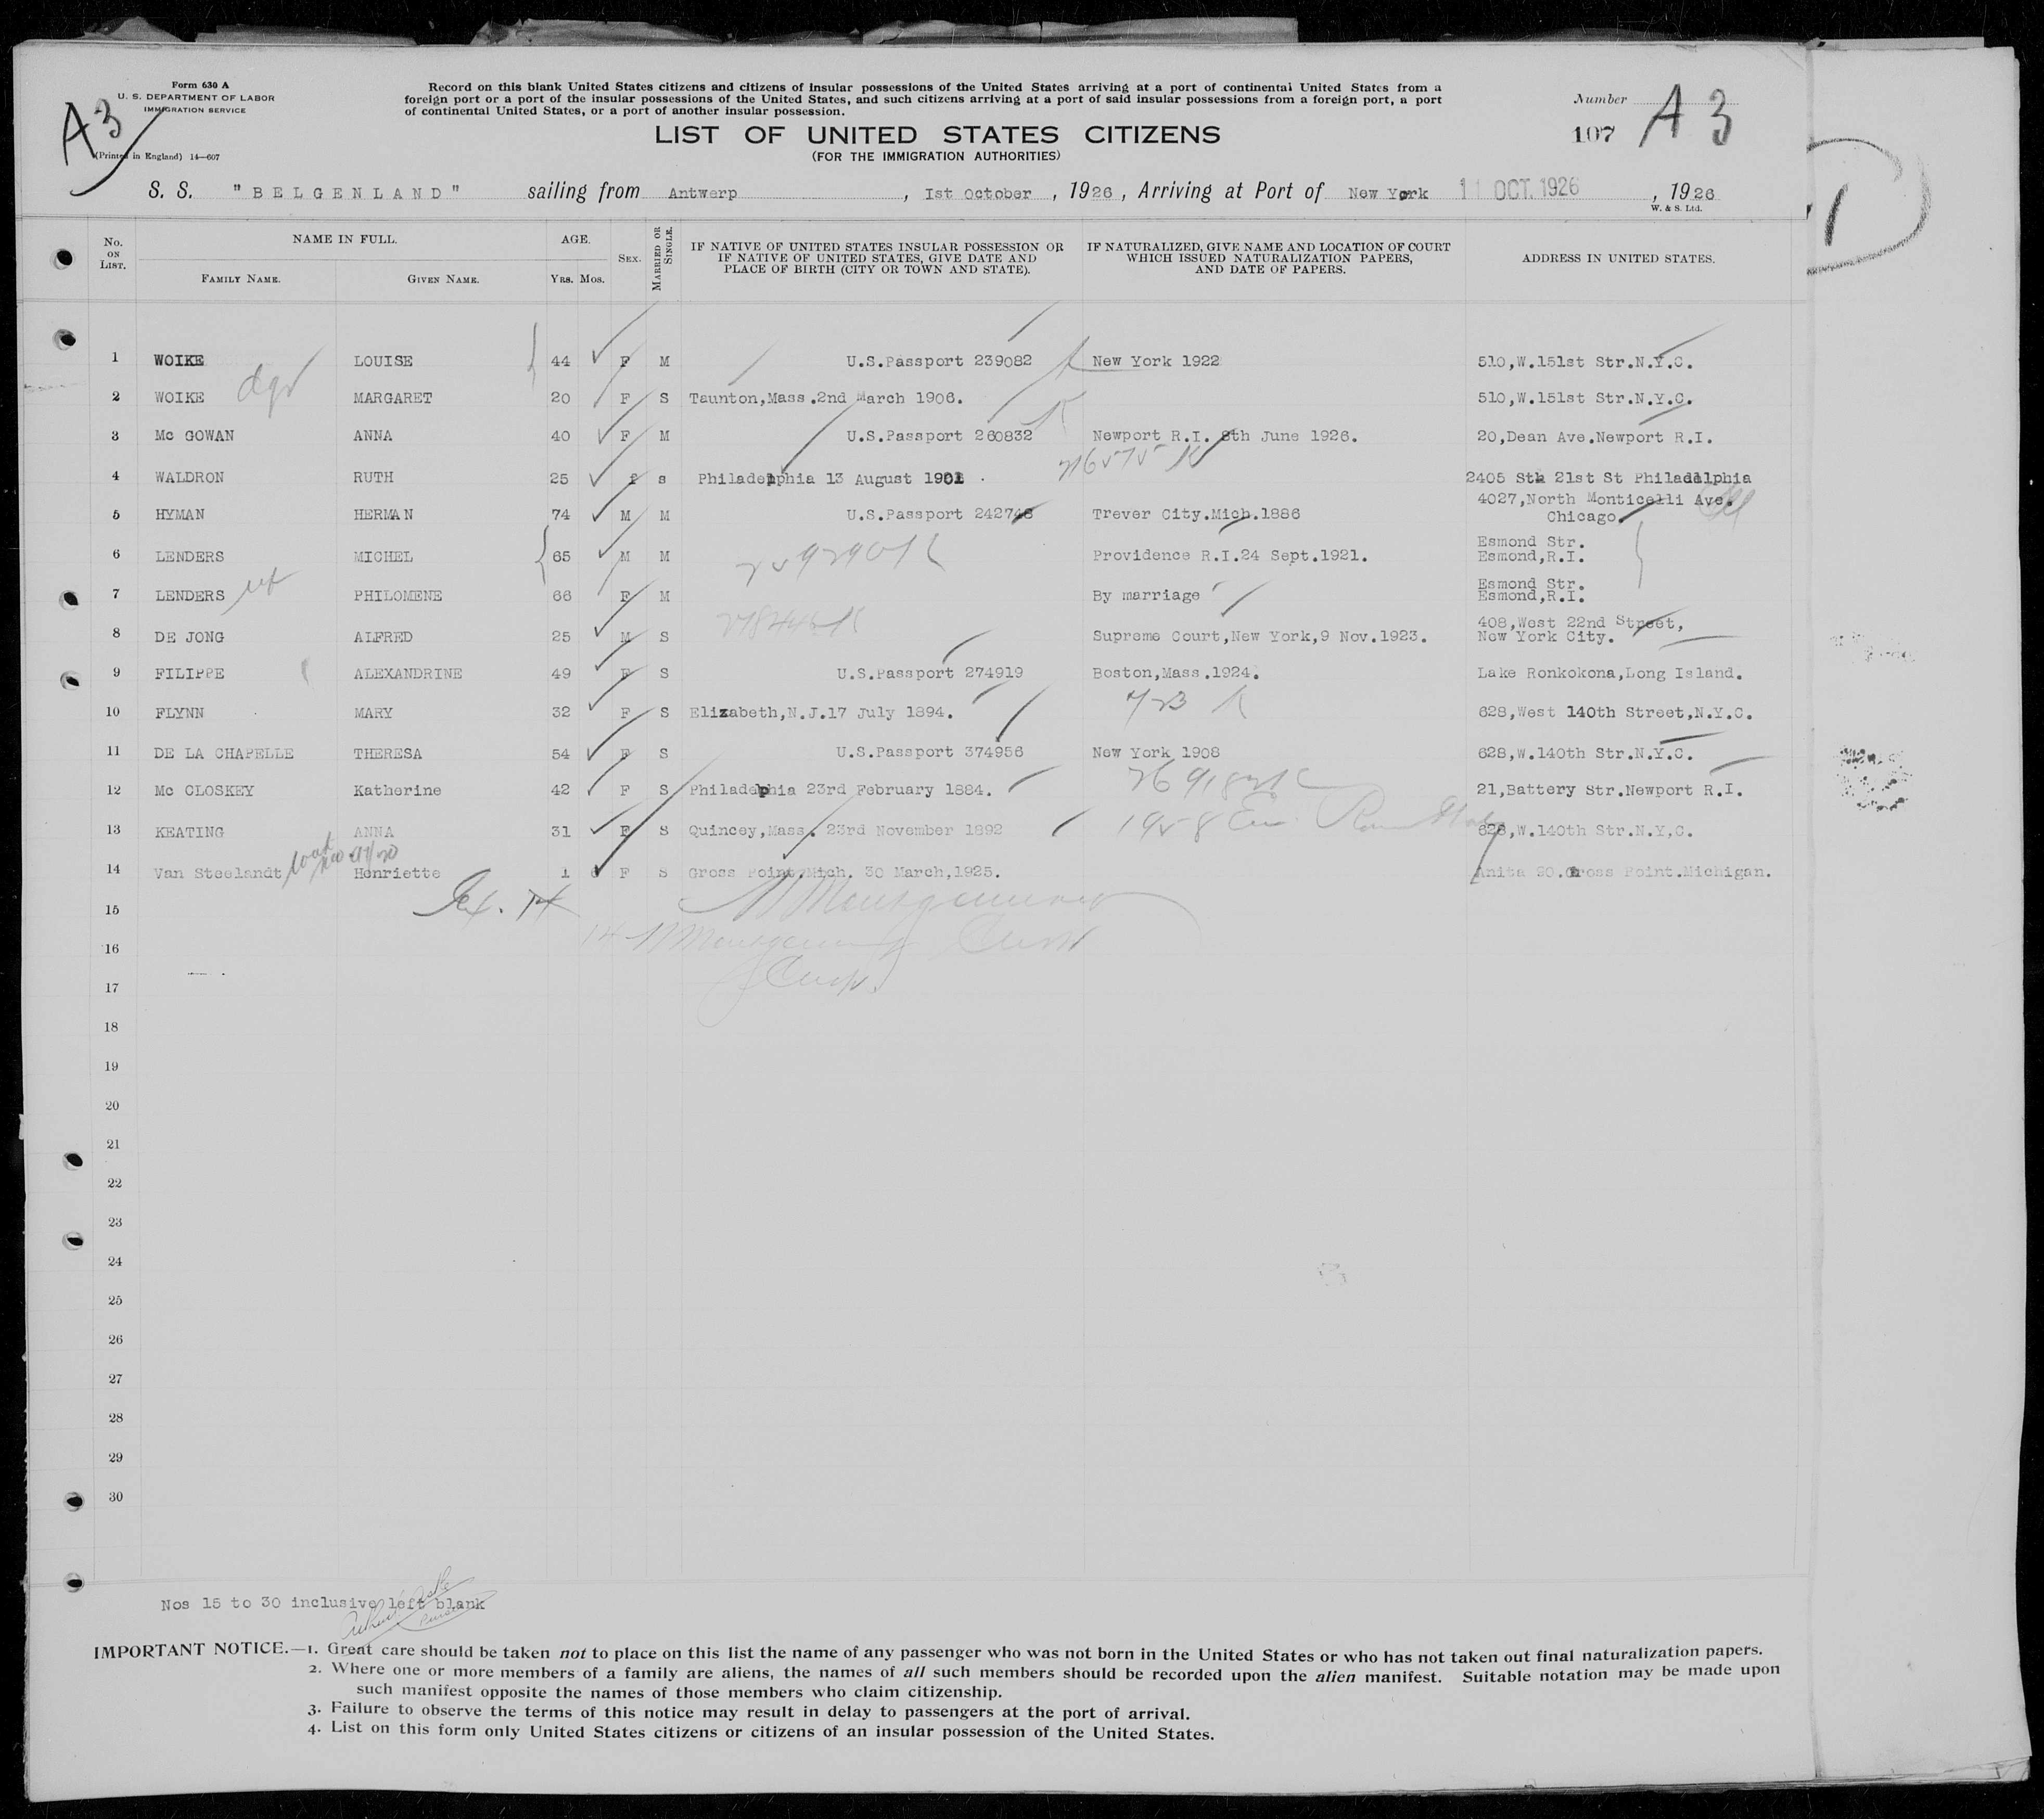 Form 630 A
U. S. DEPARTMENT OF LABOR
IMMIGRATION SERVICE
(Printed in England) 14—607
A3
Record on this blank United States citizens and citizens of insular possessions of the United States arriving at a port of continental United States from a
foreign port or a port of the insular possessions of the United States, and such citizens arriving at a port of said insular possessions from a foreign port, a port
of continental United States, or a port of another insular possession.
LIST OF UNITED STATES CITIZENS
(FOR THE IMMIGRATION AUTHORITIES)
Number
107 A 3
1
S. S. "BELGENLAND" sailing from Antwerp, Ist October, 1926, Arriving at Port of New York 11 OCT. 1926, 1926
W. & S. Ltd.
No. ON LIST. NAME IN FULL. FAMILY NAME. GIVEN NAME. AGE. YRS. MOS. SEX. MARRIED OR SINGLE. IF NATIVE OF UNITED STATES INSULAR POSSESSION OR IF NATIVE OF UNITED STATES, GIVE DATE AND PLACE OF BIRTH (CITY OR TOWN AND STATE). IF NATURALIZED, GIVE NAME AND LOCATION OF COURT WHICH ISSUED NATURALIZATION PAPERS, AND DATE OF PAPERS. ADDRESS IN UNITED STATES.
1 WOIKE LOUISE 44 F M U.S.Passport 239082 New York 1922 510,W.151st Str.N.Y.C.
2 WOIKE MARGARET 20 F S Taunton,Mass.2nd March 1906. 510,W.151st Str.N.Y.C.
3 Mc GOWAN ANNA 40 F M U.S.Passport 260832 Newport R.I. 8th June 1926. 20,Dean Ave.Newport R.I.
4 WALDRON RUTH 25 f s Philadelphia 13 August 1901. 2405 Sth 21st St Philadelphia
5 HYMAN HERMAN 74 M M U.S.Passport 242748 Trever City.Mich.1886 4027,North Monticelli Ave.
Chicago.
6 LENDERS MICHEL 65 M M Providence R.I.24 Sept.1921. Esmond Str.
Esmond,R.I.
7 LENDERS PHILOMENE 66 F M By marriage Esmond Str.
Esmond,R.I.
8 DE JONG ALFRED 25 M S Supreme Court,New York,9 Nov.1923. 408,West 22nd Street,
New York City.
9 FILIPPE ALEXANDRINE 49 F S U.S.Passport 274919 Boston,Mass.1924. Lake Ronkokona,Long Island.
10 FLYNN MARY 32 F S Elizabeth,N.J.17 July 1894. 628,West 140th Street,N.Y.C.
11 DE LA CHAPELLE THERESA 54 F S U.S.Passport 374956 New York 1908 628,W.140th Str.N.Y.C.
12 Mc CLOSKEY Katherine 42 F S Philadephia 23rd February 1884. 21,Battery Str.Newport R.I.
13 KEATING ANNA 31 F S Quincey,Mass. 23rd November 1892 628,W.140th Str.N.Y,C.
14 Van Steelandt Henriette 1 6 F S Gross Point,Mich. 30 March,1925. Anita 90.Gross Point.Michigan.
15
16
17
18
19
20
21
22
23
24
25
26
27
28
29
30
Nos 15 to 30 inclusive left blank
IMPORTANT NOTICE.—1. Great care should be taken not to place on this list the name of any passenger who was not born in the United States or who has not taken out final naturalization papers.
2. Where one or more members of a family are aliens, the names of all such members should be recorded upon the alien manifest. Suitable notation may be made upon
such manifest opposite the names of those members who claim citizenship.
3. Failure to observe the terms of this notice may result in delay to passengers at the port of arrival.
4. List on this form only United States citizens or citizens of an insular possession of the United States.